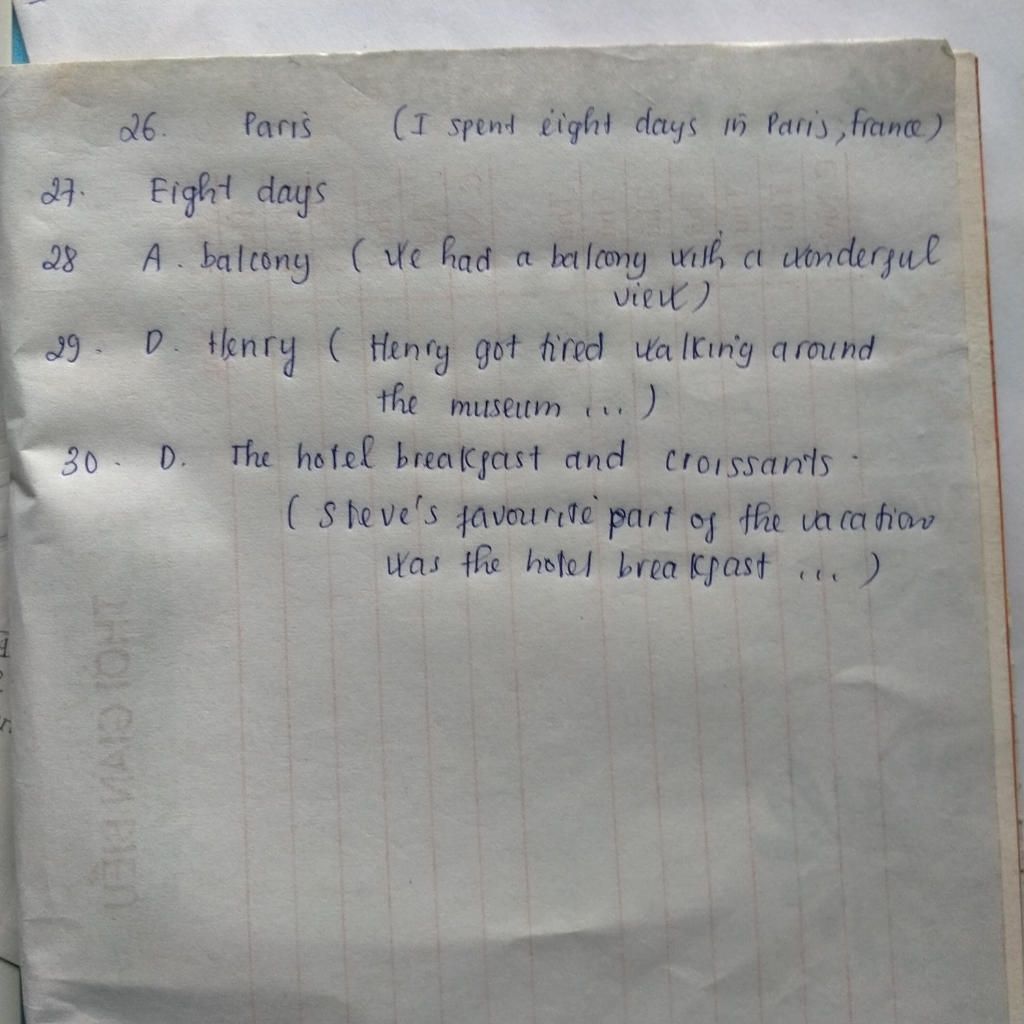 26. Paris (I spent eight days in Paris, France)
27. Eight days
28 A. balcony ( We had a balcony with a wonderful
view)
29. D. Henry ( Henry got tired walking around
the museum ... )
30. D. The hotel breakfast and croissants.
( Steve's favourite part of the vacation
was the hotel breakfast ... )
THỜI GIAN BIỂU